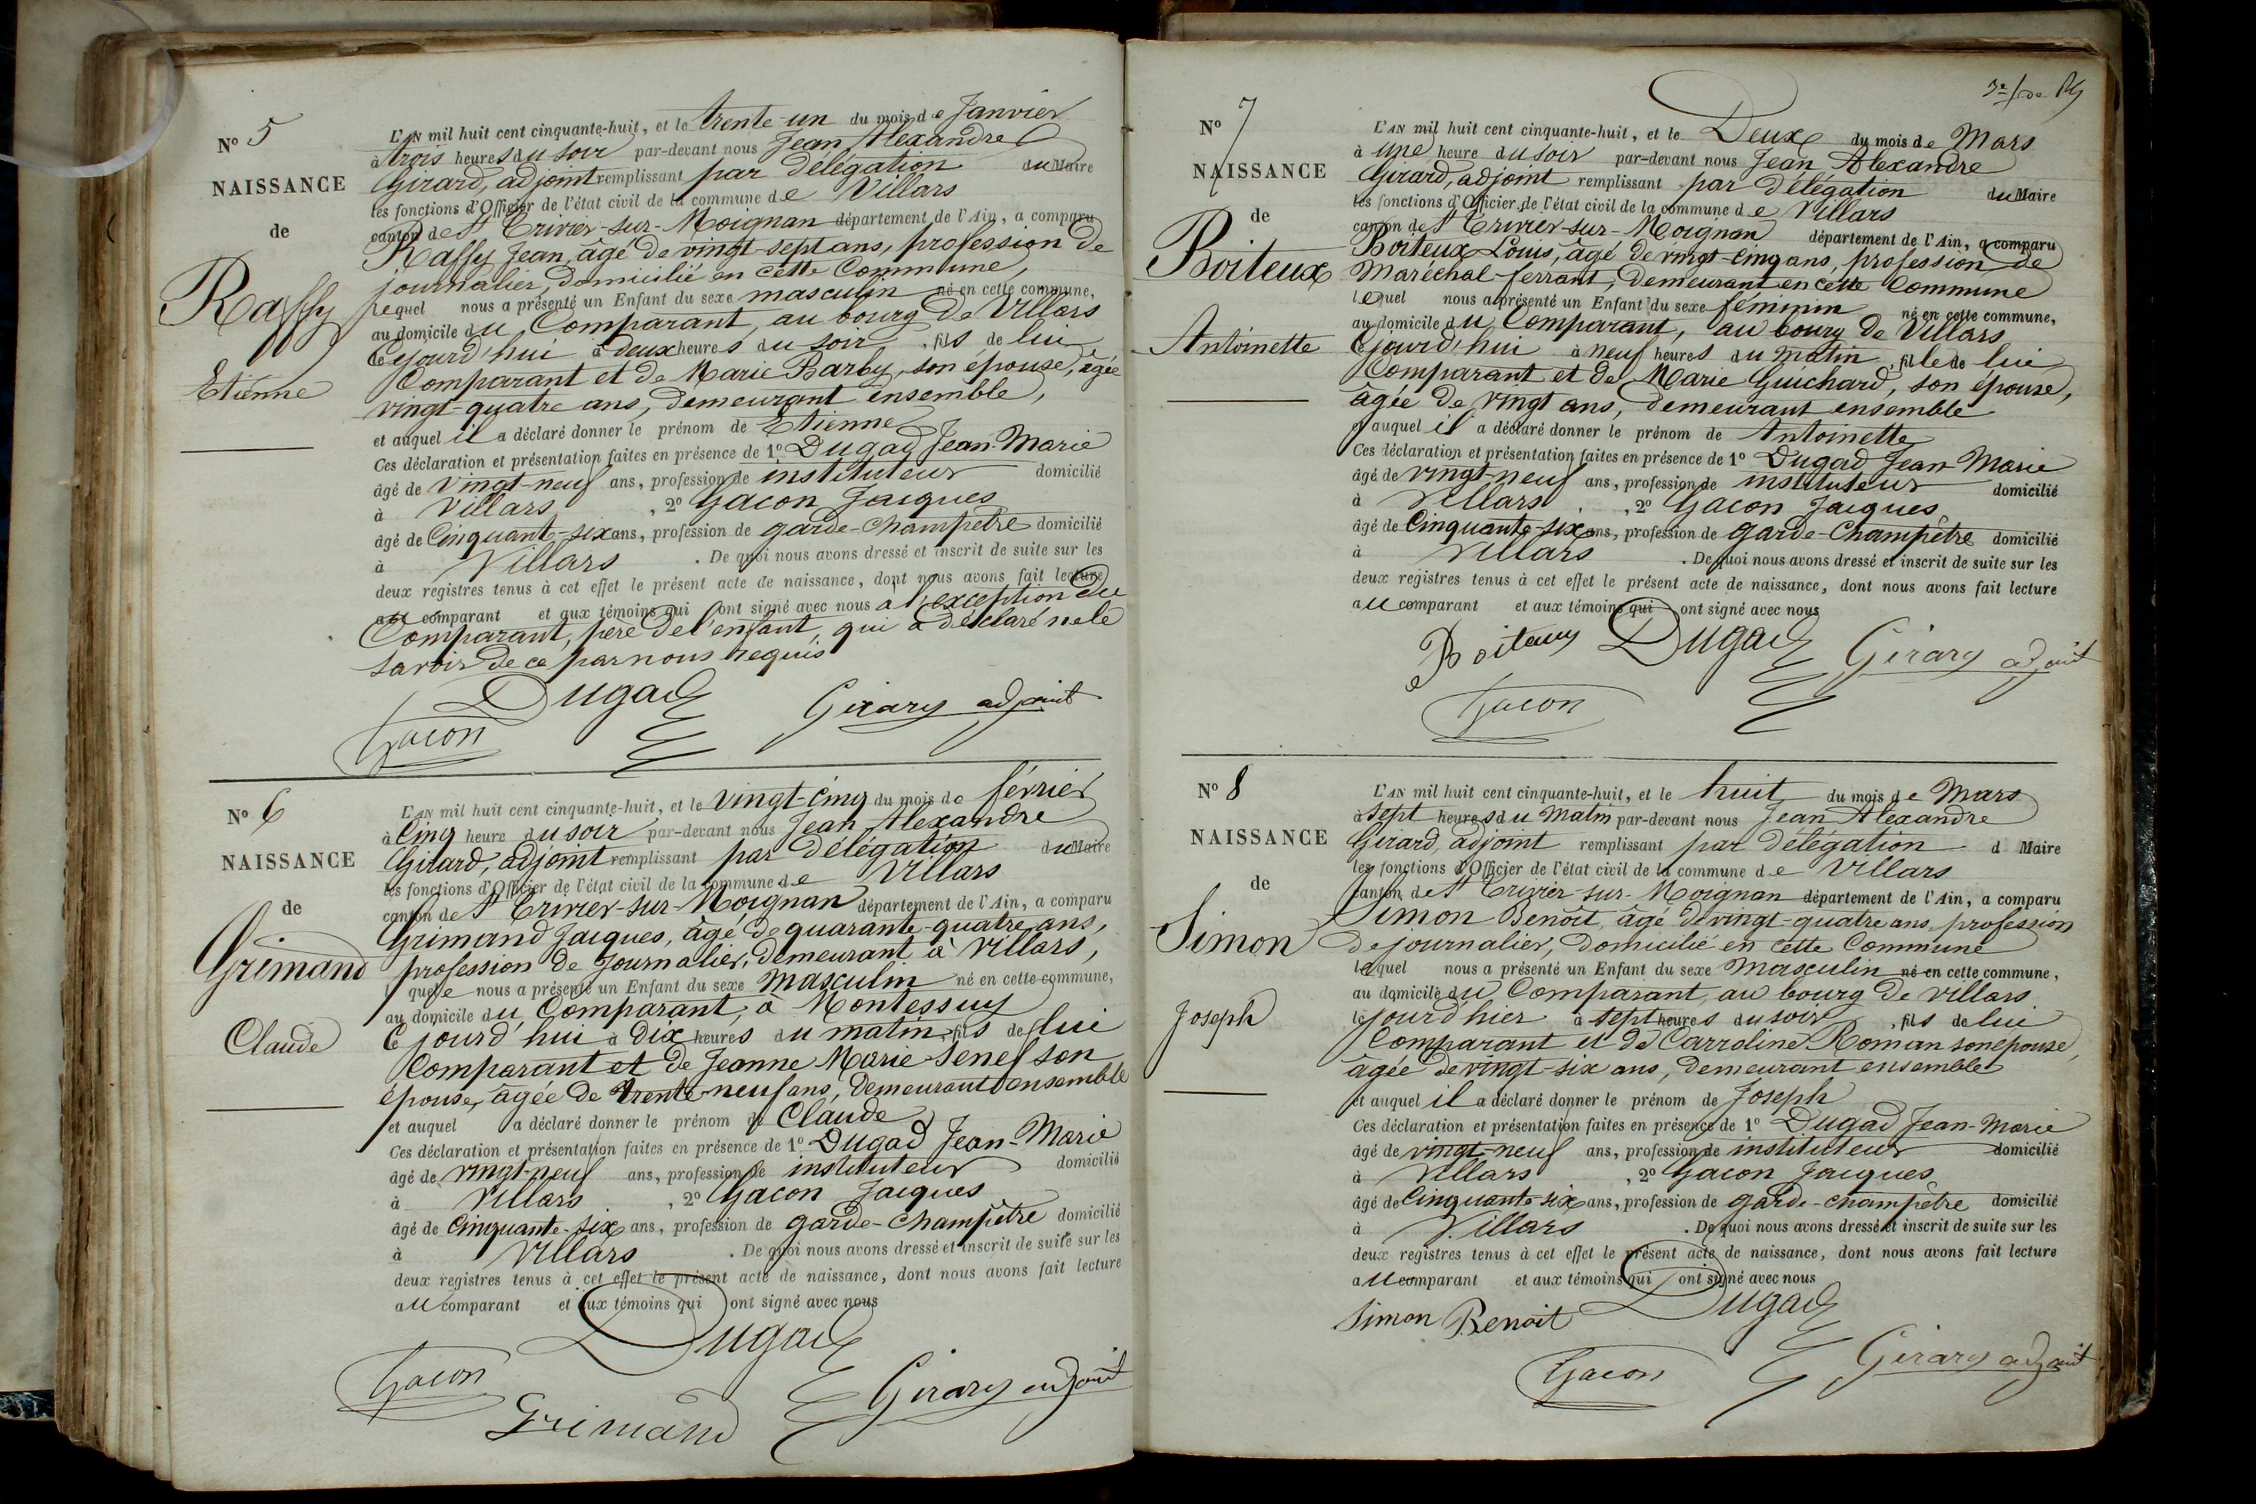 No 5
NAISSANCE
de
Raffy
Etienne
L'AN mil huit cent cinquante-huit, et le trente-un du mois de Janvier
à trois heures du soir par-devant nous Jean Alexandre
Girard, adjoint remplissant par délégation du Maire
les fonctions d'Officier de l'état civil de la commune de Villars
canton de St Trivier-sur-Moignan département de l'Ain, a comparu
Raffy Jean, âgé de vingt-sept ans, profession de
journalier, domicilié en cette Commune,
lequel nous a présenté un Enfant du sexe masculin né en cette commune,
au domicile du Comparant, au bourg de Villars
cejourd'hui à deux heures du soir, fils de lui
Comparant et de Marie Barby, son épouse, âgée
vingt-quatre ans, demeurant ensemble,
et auquel il a déclaré donner le prénom de Etienne
Ces déclaration et présentation faites en présence de 1o Dugad Jean-Marie
âgé de vingt-neuf ans, profession de instituteur domicilié
à Villars, 2o Gacon Jacques
âgé de Cinquante-six ans, profession de garde-champêtre domicilié
à Villars. De quoi nous avons dressé et inscrit de suite sur les
deux registres tenus à cet effet le présent acte de naissance, dont nous avons fait lecture
au comparant et aux témoins qui ont signé avec nous à l'exception du
Comparant, père de l'enfant, qui a déclaré ne le
savoir de ce par nous requis
Dugad
Girard adjoint
Gacon
No 6
NAISSANCE
de
Grimand
Claude
L'AN mil huit cent cinquante-huit, et le vingt-cinq du mois de février
à Cinq heure du soir par-devant nous Jean Alexandre
Girard, adjoint remplissant par délégation du Maire
les fonctions d'Officier de l'état civil de la commune de Villars
canton de St Trivier-sur-Moignan département de l'Ain, a comparu
Grimand Jacques, âgé de quarante-quatre ans,
profession de Journalier, demeurant à Villars,
quel nous a présenté un Enfant du sexe masculin né en cette commune,
au domicile du Comparant, à Montessuy
Cejourd'hui à Dix heures du matin, fils de lui
Comparant et de Jeanne Marie Senef son
épouse, âgée de trente-neuf ans, demeurant ensemble
et auquel a déclaré donner le prénom de Claude
Ces déclaration et présentation faites en présence de 1o Dugad Jean-Marie
âgé de vingt-neuf ans, profession de instituteur domicilié
à Villars, 2o Gacon Jacques
âgé de Cinquante-six ans, profession de garde-champêtre domicilié
à Villars. De quoi nous avons dressé et inscrit de suite sur les
deux registres tenus à cet effet le présent acte de naissance, dont nous avons fait lecture
au comparant et aux témoins qui ont signé avec nous
Dugad
Gacon
Girard adjoint
Grimand
No 7
NAISSANCE
de
Boiteux
Antoinette
L'AN mil huit cent cinquante-huit, et le Deux du mois de Mars
à une heure du soir par-devant nous Jean Alexandre
Girard, adjoint remplissant par délégation du Maire
les fonctions d'Officier de l'état civil de la commune de Villars
canton de St Trivier-sur-Moignan département de l'Ain, a comparu
Boiteux Louis, âgé de vingt-cinq ans, profession de
Maréchal-ferrant, demeurant en cette Commune
lequel nous a présenté un Enfant du sexe féminin né en cette commune,
au domicile du Comparant, au bourg de Villars
Cejourd'hui à neuf heures du matin, fille de lui
Comparant et de Marie Guichard, son épouse,
âgée de vingt ans, demeurant ensemble
et auquel il a déclaré donner le prénom de Antoinette
Ces déclaration et présentation faites en présence de 1o Dugad Jean-Marie
âgé de vingt-neuf ans, profession de instituteur domicilié
à Villars, 2o Gacon Jacques
âgé de Cinquante-six ans, profession de garde-champêtre domicilié
à Villars. De quoi nous avons dressé et inscrit de suite sur les
deux registres tenus à cet effet le présent acte de naissance, dont nous avons fait lecture
au comparant et aux témoins qui ont signé avec nous
Boiteux Dugad
Girard adjoint
Gacon
No 8
NAISSANCE
de
Simon
Joseph
L'AN mil huit cent cinquante-huit, et le huit du mois de Mars
à sept heures du Matin par-devant nous Jean Alexandre
Girard, adjoint remplissant par délégation d Maire
les fonctions d'Officier de l'état civil de la commune de Villars
canton de St Trivier-sur-Moignan département de l'Ain, a comparu
Simon Benoît, âgé de vingt-quatre ans, profession
de journalier, domicilié en cette Commune
lequel nous a présenté un Enfant du sexe Masculin né en cette commune,
au domicile du Comparant, au bourg de Villars
le jourd'hier à sept heures du soir, fils de lui
Comparant et de Carroline Roman son épouse,
âgée de vingt-six ans, demeurant ensemble
et auquel il a déclaré donner le prénom de Joseph
Ces déclaration et présentation faites en présence de 1o Dugad Jean-Marie
âgé de vingt-neuf ans, profession de instituteur domicilié
à Villars, 2o Gacon Jacques
âgé de Cinquante-six ans, profession de garde-champêtre domicilié
à Villars. De quoi nous avons dressé et inscrit de suite sur les
deux registres tenus à cet effet le présent acte de naissance, dont nous avons fait lecture
au comparant et aux témoins qui ont signé avec nous
Simon Benoit Dugad
Girard adjoint
Gacon